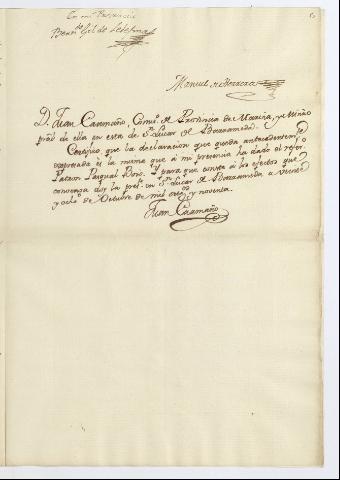 En mi Presencia
Bern.do Gil de Ledesma
Manuel de Herrera
D. Juan Caamaño, Com.o de Provincia de Marina, y Mtro
pral de ella en esta de S.n Lucar de Barrameda.
Certifico que la declaracion que queda antecedentem.te
expresada es la misma que à mi presencia ha dado el refer.do
Patron Pasqual Pons. Y para que conste à los efectos que
convenga doy la pres.te en S.n Lucar de Barrameda a veinte
y ocho de Octubre de mil setez.s y noventa.
Juan Caamaño